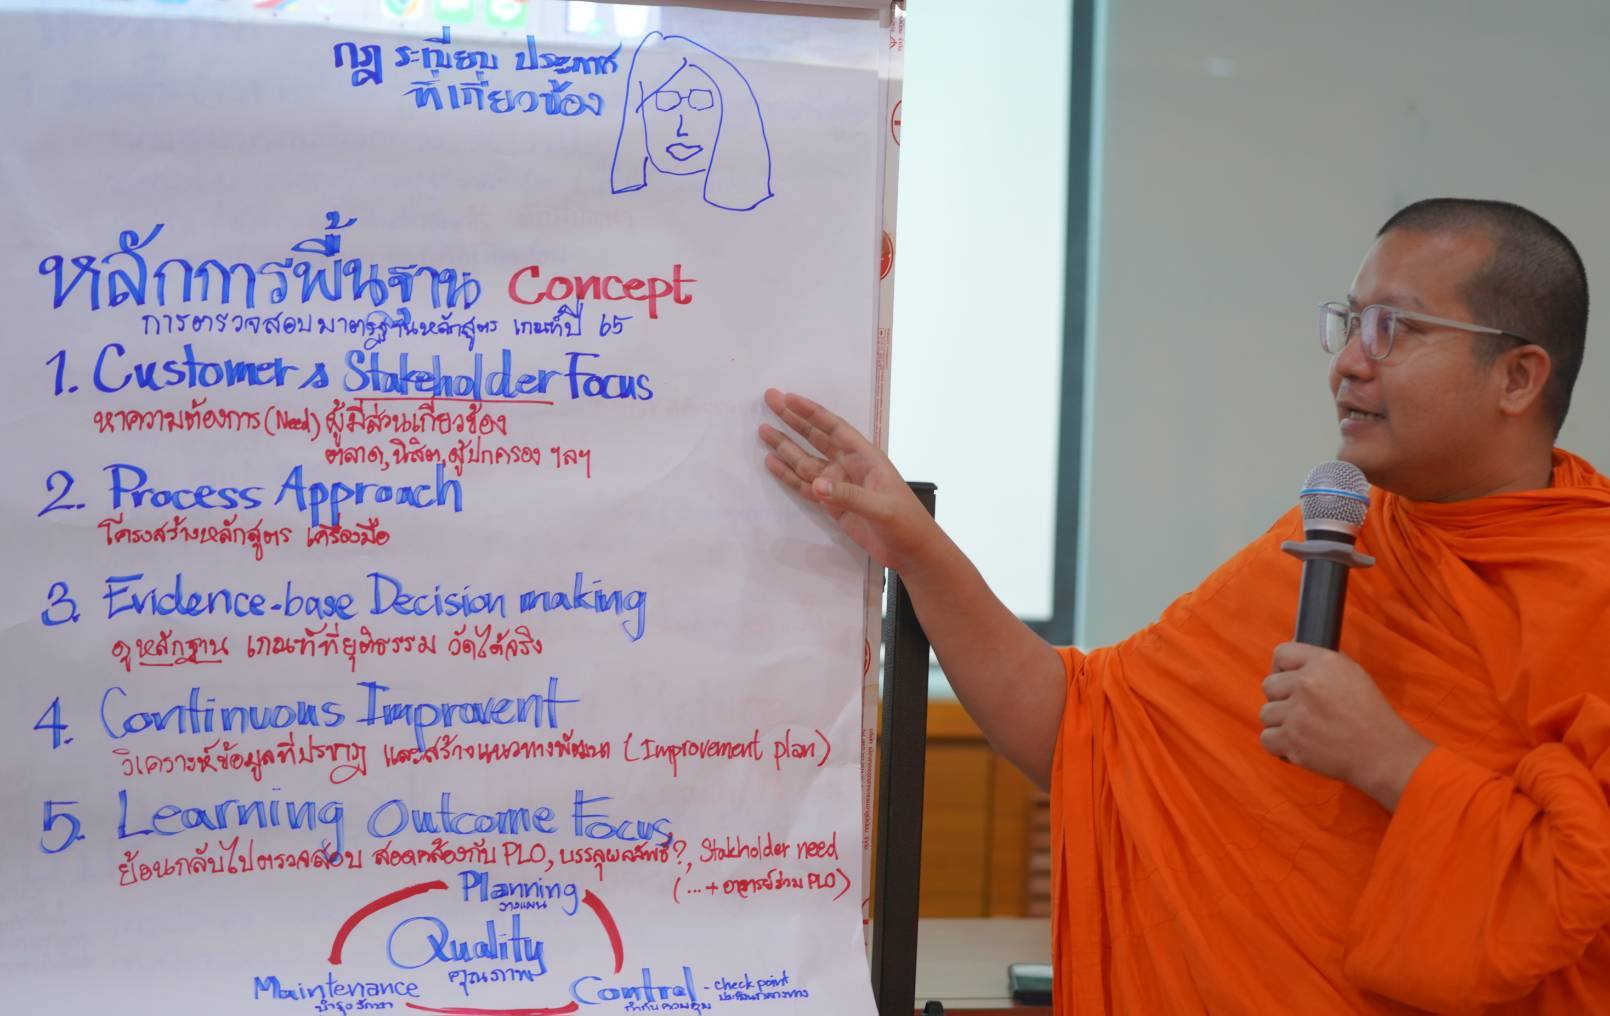 กฎ ระเบียบ ประกาศ
ที่เกี่ยวข้อง
หลักการพื้นฐาน Concept
การตรวจสอบมาตรฐานหลักสูตร เกณฑ์ปี 65
1. Customer & Stakeholder Focus
หาความต้องการ (Need) ผู้มีส่วนเกี่ยวข้อง
ตลาด, นิสิต, ผู้ปกครอง ฯลฯ
2. Process Approach
โครงสร้างหลักสูตร เครื่องมือ
3. Evidence-base Decision making
ดูหลักฐาน เกณฑ์ที่ยุติธรรม วัดได้จริง
4. Continuous Improvent
วิเคราะห์ข้อมูลที่ปรากฏ และสร้างแนวทางพัฒนา (Improvement plan)
5. Learning Outcome Focus
ย้อนกลับไปตรวจสอบ สอดคล้องกับ PLO, บรรลุผลลัพธ์?, Stakeholder need
(... + อาจารย์ร่วม PLO)
Planning
วางแผน
Quality
คุณภาพ
Maintenance
บำรุงรักษา
Control - check point
กำกับควบคุม